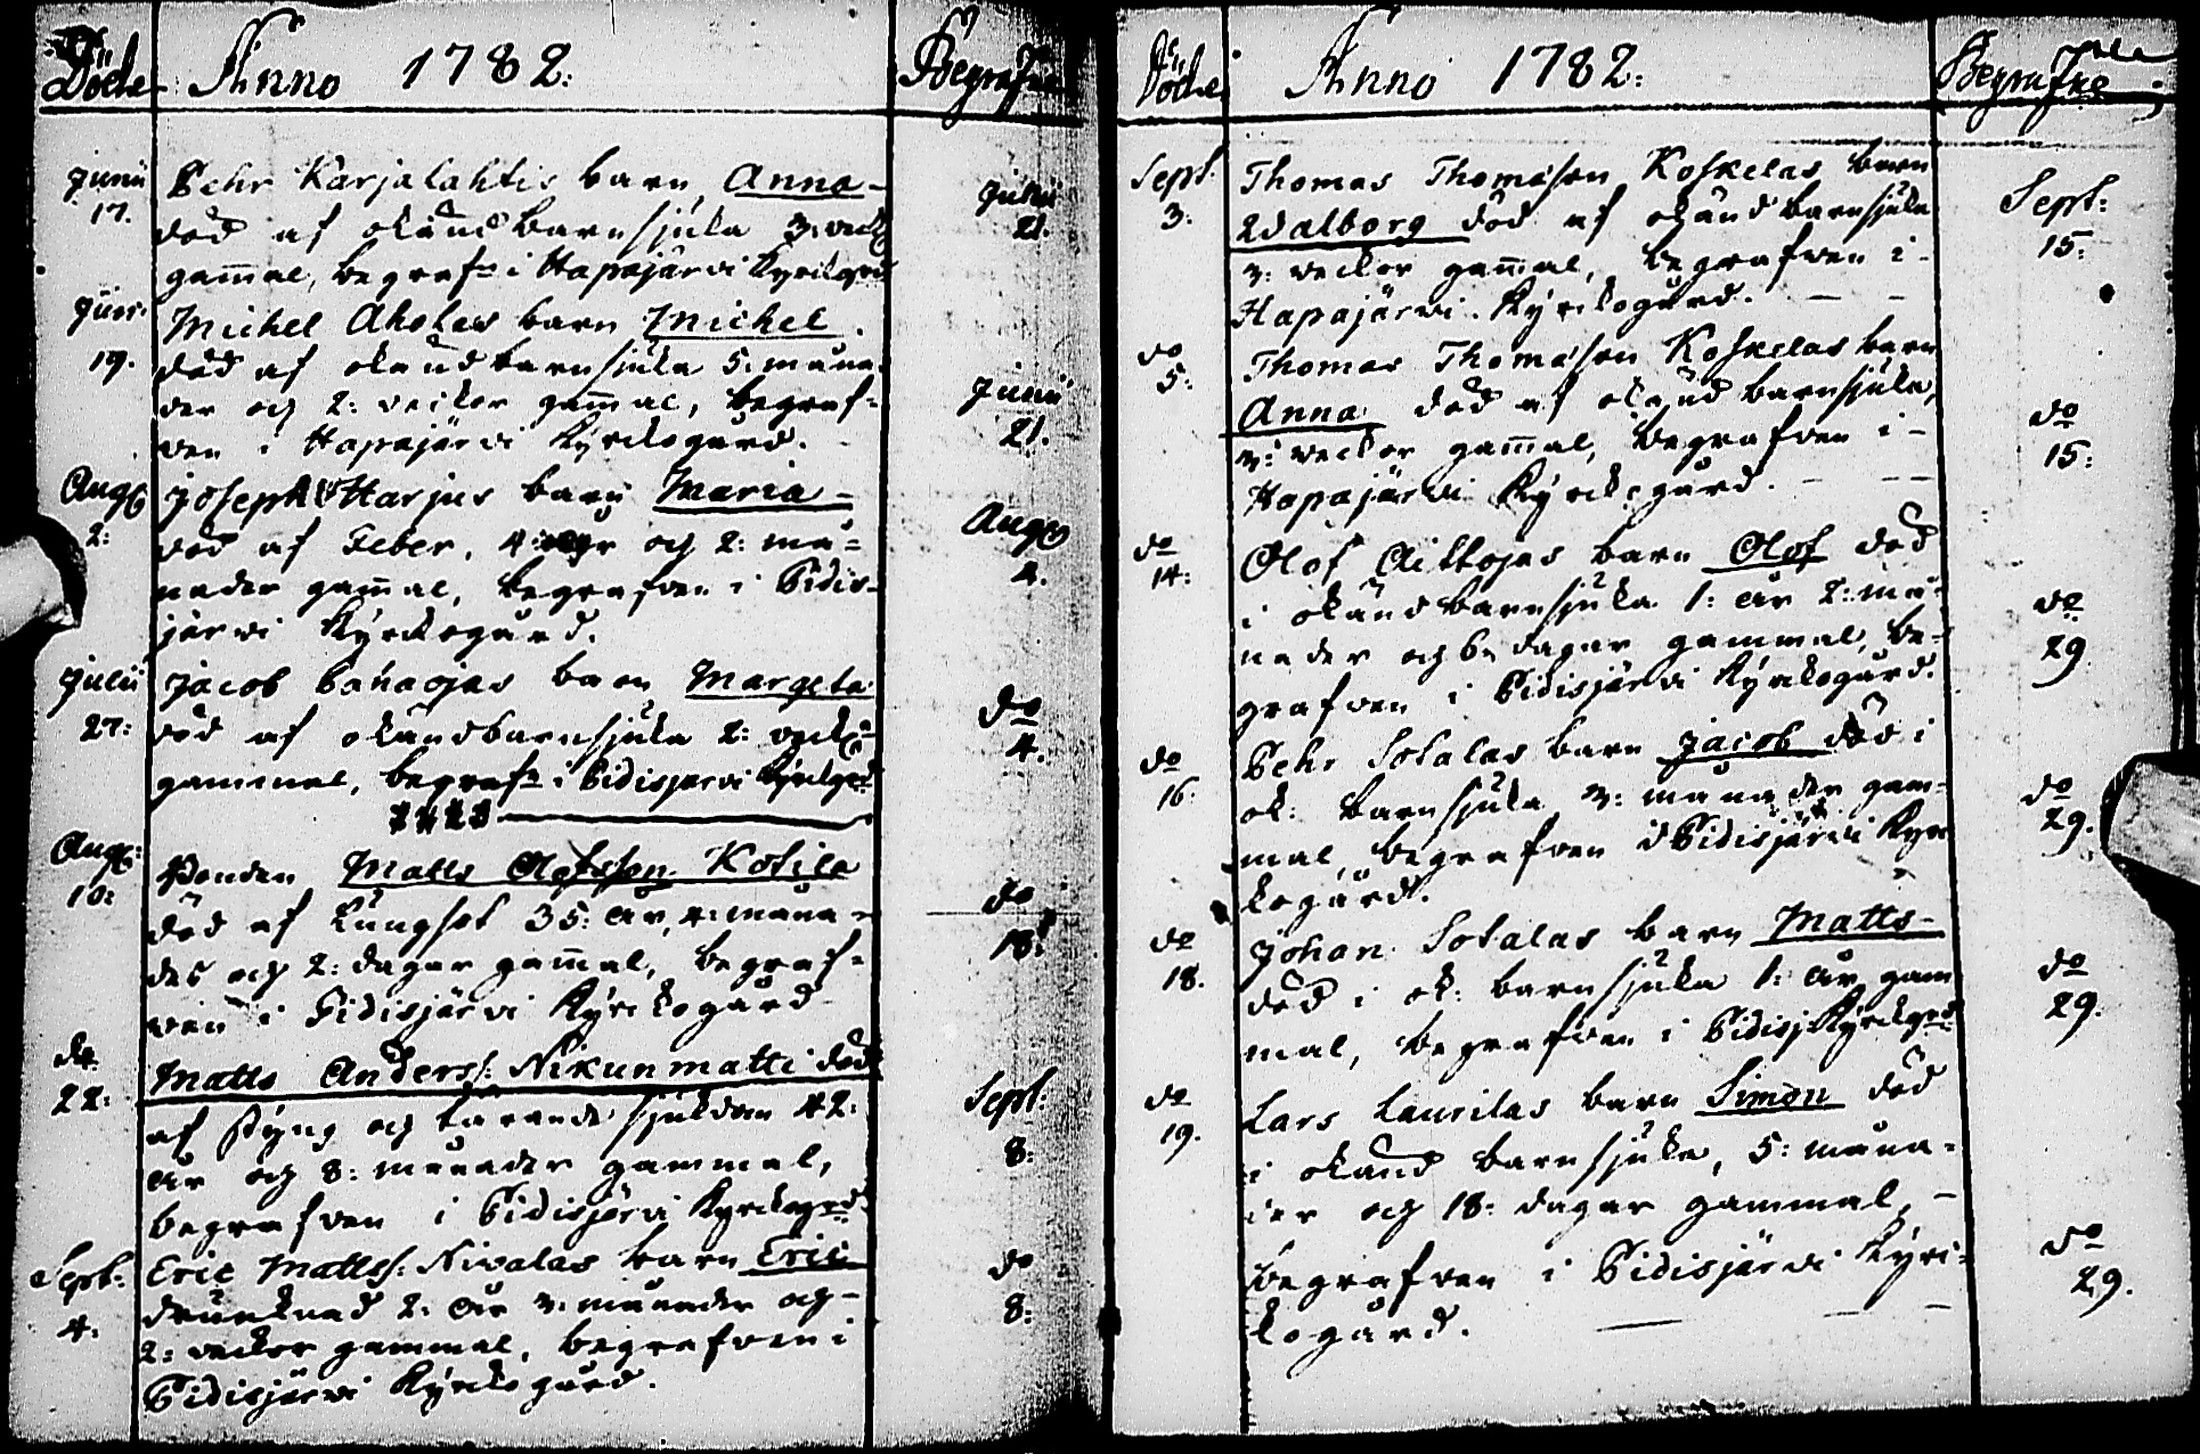 Döde Anno 1782: Begrafne
Junii Pehr Karjalahtis barn Anna - Junii
17. död af okänd barnsjuka 3: veck 21.
gam̄al, begrafn i Hapajärvi Kyrckogrd
Jun: Michel Aholas barn Michel.
19. död af okänd barnsjuka 5: måna-
der och 2: veckor gam̄al, begraf= Junii
ven i Hapajärvi Kyrckogård. 21.
Aug Joseph Harjus barn Maria -
2: död af Feber, 4: och 2: må= Aug
nader gam̄al, begrafven i Pidis- 4.
järvi Kyrckogård.
Julii Jacob bañaojas barn Margeta do
27: död af okändbarnsjuka 2: veck 4.
gammal, begrafn i Pidisjärvi Kyrckgrd
Aug: Bonden Matts Olofsson Kotila do
10: död af Lungsot 35: år, 4: måna- 18:
der och 2: dagar gam̄al, begraf=
ven i Pidisjärvi Kyrckogård
do Matts Anders: Nikunmatti död
22: af styng och tärande sjukdom 42: Sept:
år och 8: månader gammal, 8:
begrafven i Pidisjärvi Kyrckogrd
Sept: Eric Matts: Nivalas barn Eric do
4. drunknad 2: år 3: månader och - 8:
2: veckor gammal, begrafven i
Pidisjärvi Kyrckogård.
Döde Anno 1782: Begrafne
Sept. Thomas Thomasson Koskelas barn Sept:
3: Walborg död af okänd barnsjuka 15:
3: veckor gam̄al, begrafven i -
Hapajärvi Kyrckogård. - -
do Thomas Thomasson Koskelas barn
5: Anna död af okänd barnsjuka, do
3: veckor gam̄al, begrafven i - 15:
Hapajärvi Kyrckogård. - - -
do Olof Aittojas barn Olof död
14: i okänd barnsjuka 1: år 2: må- do
nader och 6: dagar gammal, be- 29.
grafven i Pidisjärvi Kyrckogård.
do Pehr Sotalas barn Jacob död i
16: ok: barnsjuka 3: månader gam- do
mal, begrafven i Pidisjärvi Kyrc 29.
kogård.
do Johan Sotalas barn Matts -
18. död i ok: barnsjuka 1: år gam do
mal, begrafven i Pidisj: Kyrckgrd 29.
do Lars Laurilas barn Simon död
19. i okänd barnsjuka, 5: måna-
der och 18: dagar gammal, -
begrafven i Pidisjärvi Kyrc- do
kogård. - - - 29.